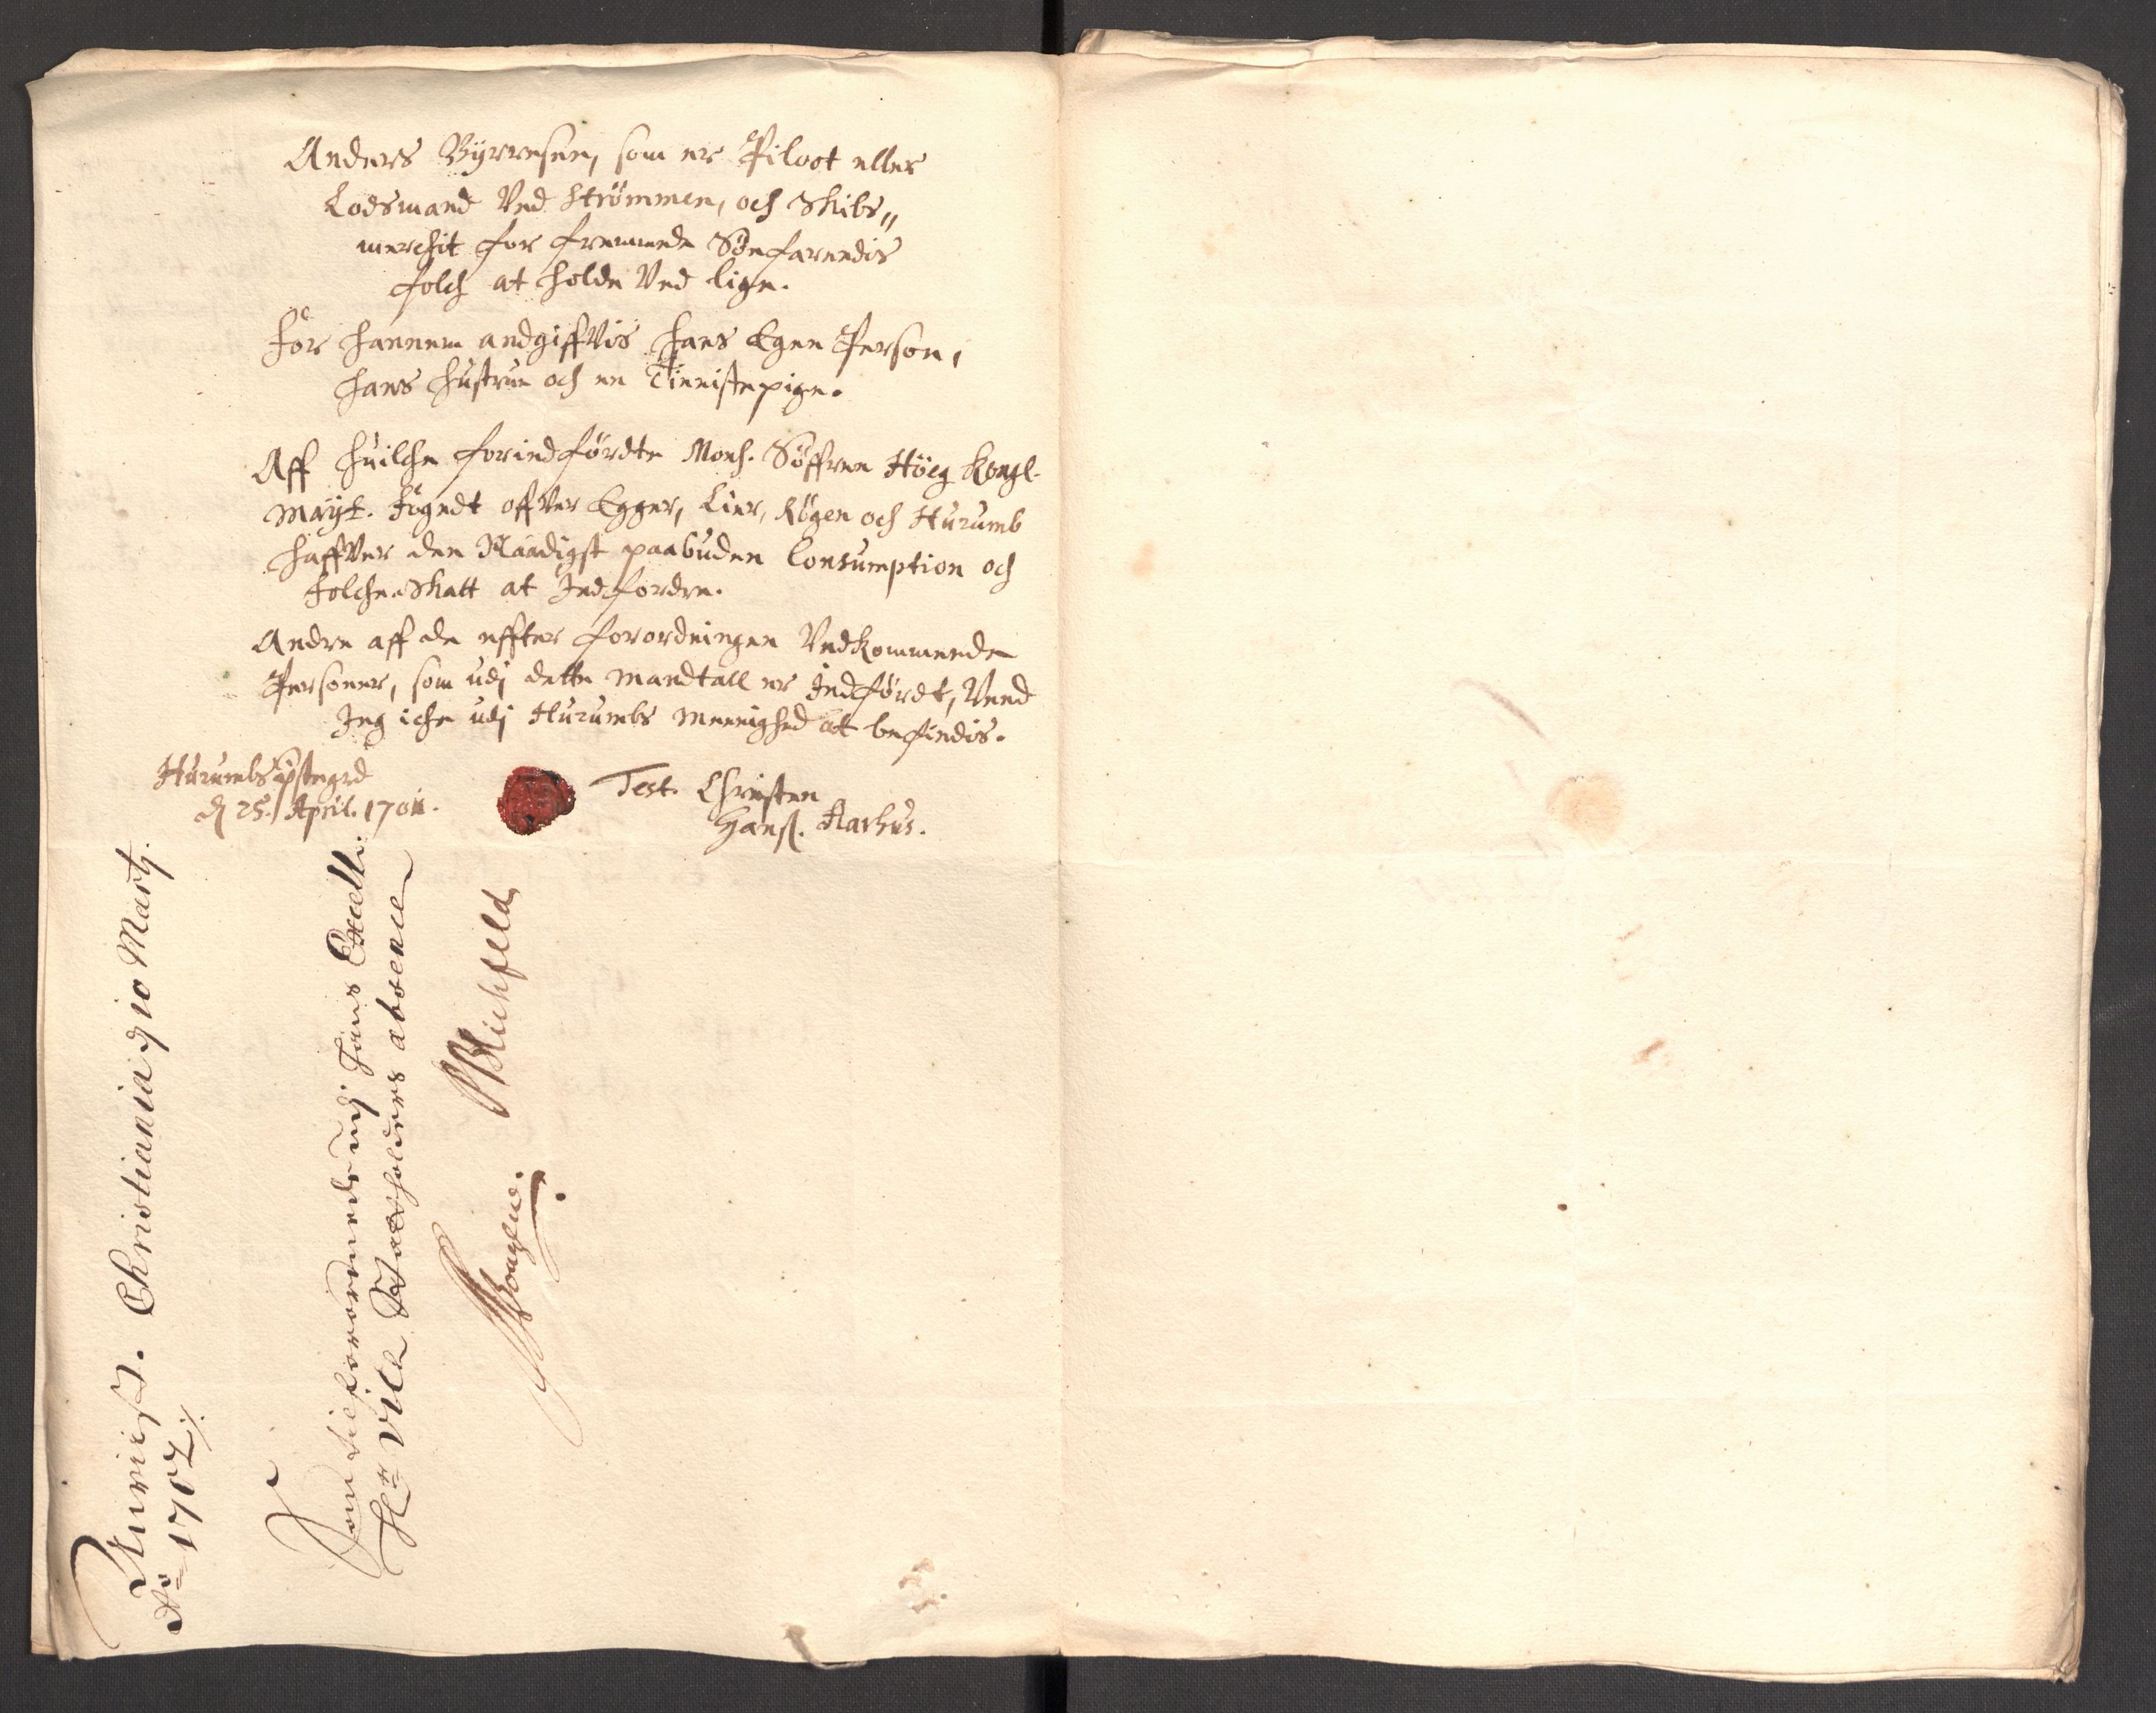 Anders Byrresen, som er Piloot eller
Lodsmand Ved Strömmen, och Skibs„
merchit for fremmede Söefarendis
folch at holde Ved lige.
För hannem andgiffVis hans Egen Person,
hans hustrue och en Tienistepige.
Aff huilche forindfördte Mons. Söffren Höeg Kongl.
Mayt. Fögedt offVer Egger, Lier, Rögen och Hurumb
haffVer den Naadigst paabuden Consumption och
Folche-Skatt at Indfordre.
Andre aff de effter forordningen Vedkommende
Personer, som udj dette Mandtall er Indfördt, Veed
Jeg iche udj Hurumbs Meenighed at befindis.
Hurumbs pstegrd
d 25. April. 1701.
Test. Christen
Hanß. Aarhus.
Christiania d 10 Martj.
Ao 1702
Som udj hans Excell:
Hr Vice Statholders absence